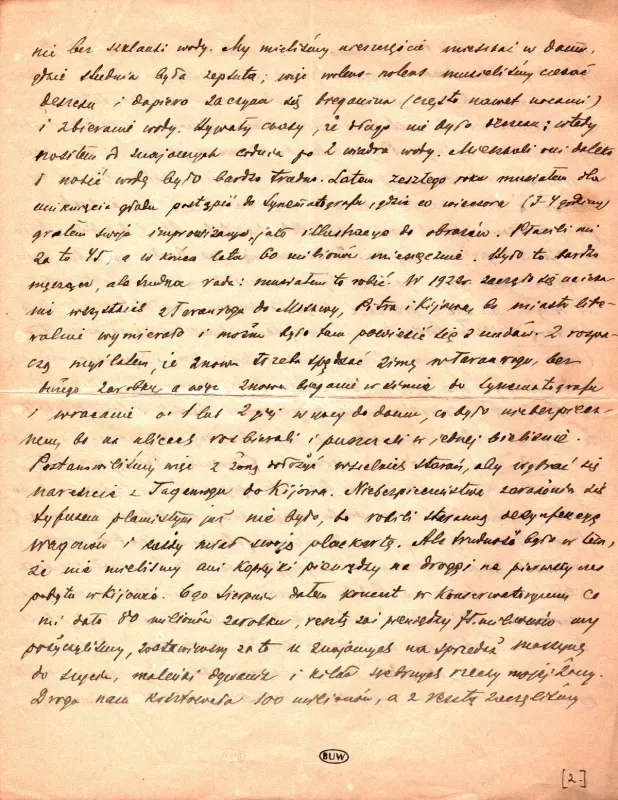 nie bez szklanki wody. My mieliśmy nieszczęście mieszkać w domu,
gdzie studnia była zepsuta; więc wolens-nolens musieliśmy czekać
deszczu i dopiero zaczyna się bieganina (często nawet nocami)
i zbieranie wody. Bywały czasy, że długo nie było deszczu; wtedy
nosiłem od znajomych codnia po 2 wiadra wody. Mieszkali oni daleko
i nosić wodę było bardzo trudno. Latem zeszłego roku musiałem dla
uniknięcia głodu postąpić do Synematografu, gdzie co wieczora (3-4 godziny)
grałem swoje improwizacye, jako illustracye do obrazów. Płacili mi
za to 45, a w końcu lata 60 milionów miesięcznie. Było to bardzo
męczące, ale trudna rada: musiałem to robić. W 1922r. zaczęło się ucieka-
nie wszystkich z Taganrogu do Moskwy, Pitra i Kijowa, bo miasto lite-
ralnie wymierało i można było tam powiesić się z nudów. Z rozpa-
czą myślałem, że znowu trzeba spędzać zimę w Taganrogu, bez
dużego zarobku, a więc znowu bieganie w zimie do Synematografu
i wracanie o 1 lub 2 giej w nocy do domu, co było niebezpiecz-
nem, bo na ulicach rozbierali i puszczali w jednej bieliźnie.
Postanowiliśmy więc z żoną dołożyć wszelkich starań, aby wybrać się
nareszcie z Taganrogu do Kijowa. Niebezpieczeństwa zarażenia się
tyfusem plamistym już nie było, bo robili staranną dezynfekcyę
wagonów i każdy miał swoją plackartę. Ale trudność była w tem,
że nie mieliśmy ani kopiejki pieniędzy na drogę i na pierwszy czas
pobytu w Kijowie. 6go Sierpnia dałem koncert w Konserwatoryum, co
mi dało 80 milionów zarobku, resztę zaś pieniędzy 75 milionów my
pożyczyliśmy, zostawiwszy za to u znajomych na sprzedaż maszynę
do szycia, maleńki dywanik i kilka srebrnych rzeczy mojej żony.
Droga nam kosztowała 100 milionów, a z resztą zaczęliśmy
BUW
[2.]